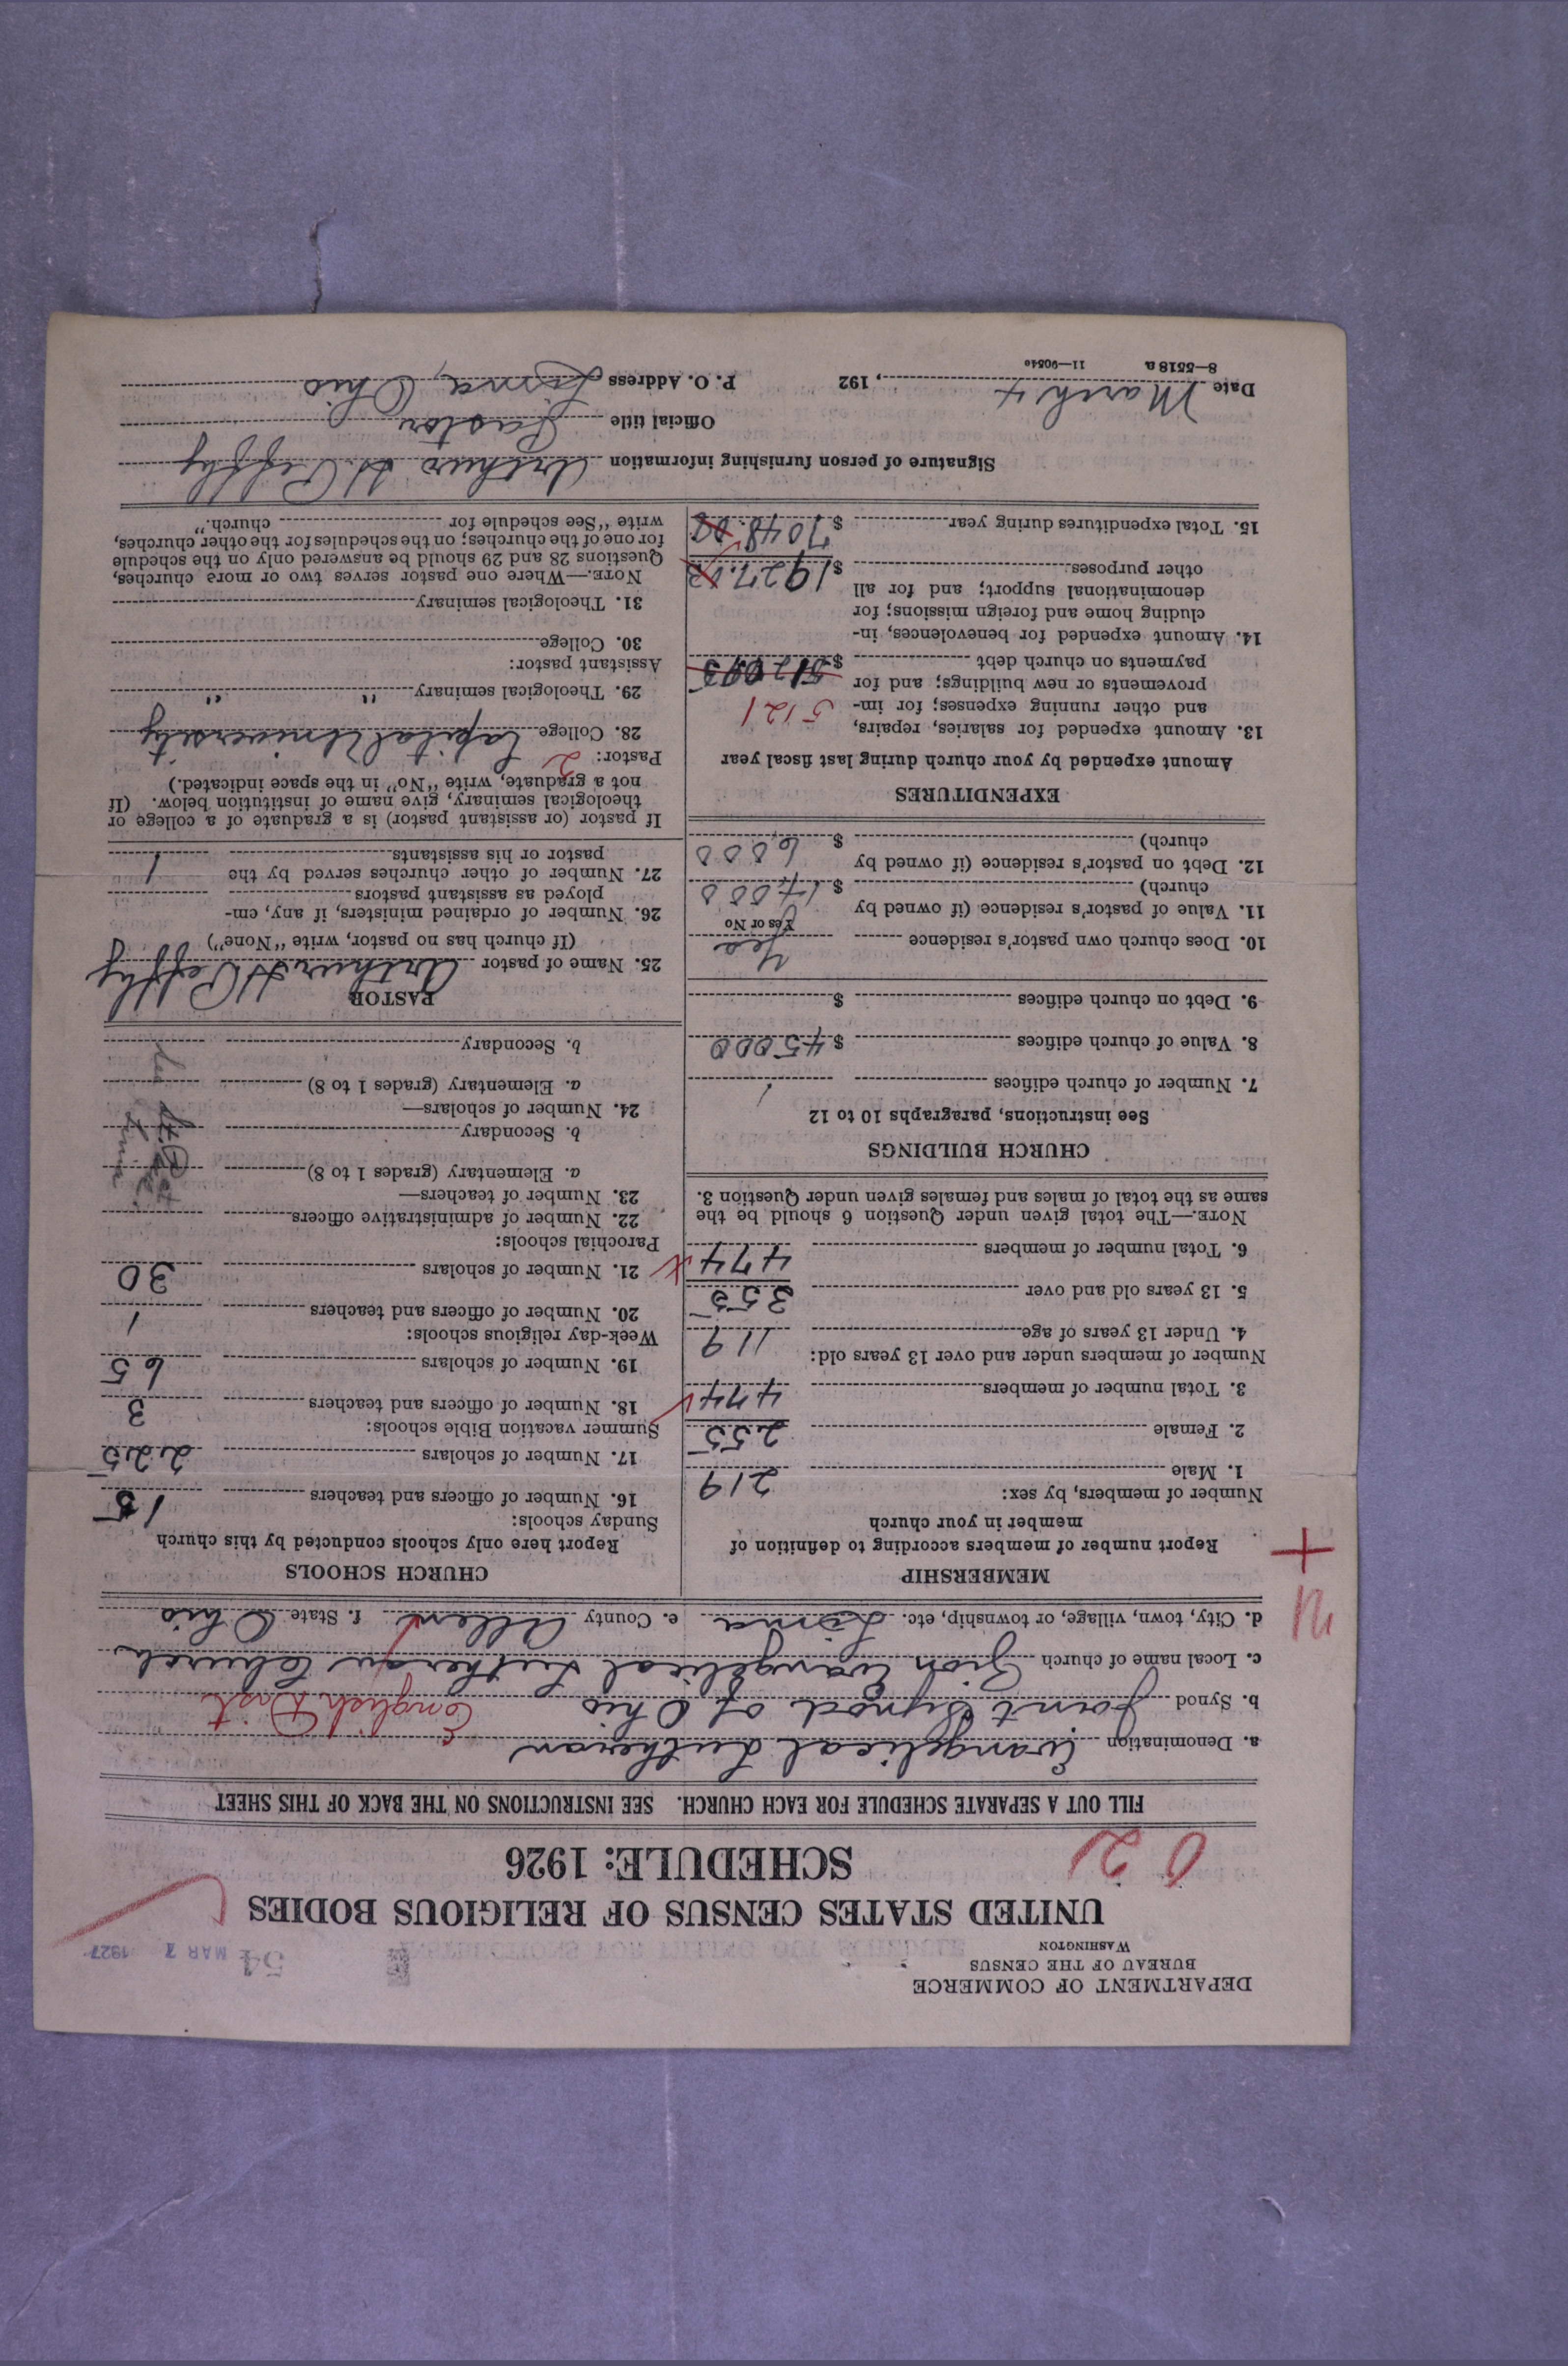 DEPARTMENT OF COMMERCE
BUREAU OF THE CENSUS
WASHINGTON
54 MAR 7 1927
UNITED STATES CENSUS OF RELIGIOUS BODIES
SCHEDULE: 1926
0 21
FILL OUT A SEPARATE SCHEDULE FOR EACH CHURCH. SEE INSTRUCTIONS ON THE BACK OF THIS SHEET
a. Denomination Evangelical Lutheran
b. Synod Joint Synod of Ohio English Dist.
c. Local name of church Zion Evangelical Lutheran Church
d. City, town, village, or township, etc. Lima e. County Allen f. State Ohio
MEMBERSHIP
Report number of members according to definition of
member in your church
Number of members, by sex:
1. Male 219
2. Female 255
3. Total number of members 474
Number of members under and over 13 years old:
4. Under 13 years of age 119
5. 13 years old and over 355
6. Total number of members 474
NOTE.—The total given under Question 6 should be the
same as the total of males and females given under Question 3.
CHURCH BUILDINGS
See instructions, paragraphs 10 to 12
7. Number of church edifices 1
8. Value of church edifices $45000
9. Debt on church edifices $
10. Does church own pastor's residence Yes
Yes or No
11. Value of pastor's residence (if owned by
church) $17,000
12. Debt on pastor's residence (if owned by
church) $6,000
EXPENDITURES
Amount expended by your church during last fiscal year
13. Amount expended for salaries, repairs,
and other running expenses; for im- 5121
provements or new buildings; and for
payments on church debt $
14. Amount expended for benevolences, in-
cluding home and foreign missions; for
denominational support; and for all
other purposes $1927.
15. Total expenditures during year $7048.
CHURCH SCHOOLS
Report here only schools conducted by this church
Sunday schools:
16. Number of officers and teachers 18
17. Number of scholars 225
Summer vacation Bible schools:
18. Number of officers and teachers 3
19. Number of scholars 65
Week-day religious schools:
20. Number of officers and teachers 1
21. Number of scholars 30
Parochial schools:
22. Number of administrative officers
23. Number of teachers—
a. Elementary (grades 1 to 8)
b. Secondary
24. Number of scholars—
a. Elementary (grades 1 to 8)
b. Secondary
PASTOR
25. Name of pastor Arthur H Peffly
(If church has no pastor, write "None")
26. Number of ordained ministers, if any, em-
ployed as assistant pastors
27. Number of other churches served by the
pastor or his assistants 1
If pastor (or assistant pastor) is a graduate of a college or
theological seminary, give name of institution below. (If
not a graduate, write "No" in the space indicated.)
Pastor: 2
28. College Capital University
29. Theological seminary " "
Assistant pastor:
30. College
31. Theological seminary
NOTE.—Where one pastor serves two or more churches,
Questions 28 and 29 should be answered only on the schedule
for one of the churches; on the schedules for the other churches,
write "See schedule for church."
Signature of person furnishing information Arthur H. Peffly
Official title Pastor
Date March 4, 192 P. O. Address Lima, Ohio
8—5518a 11—9054o